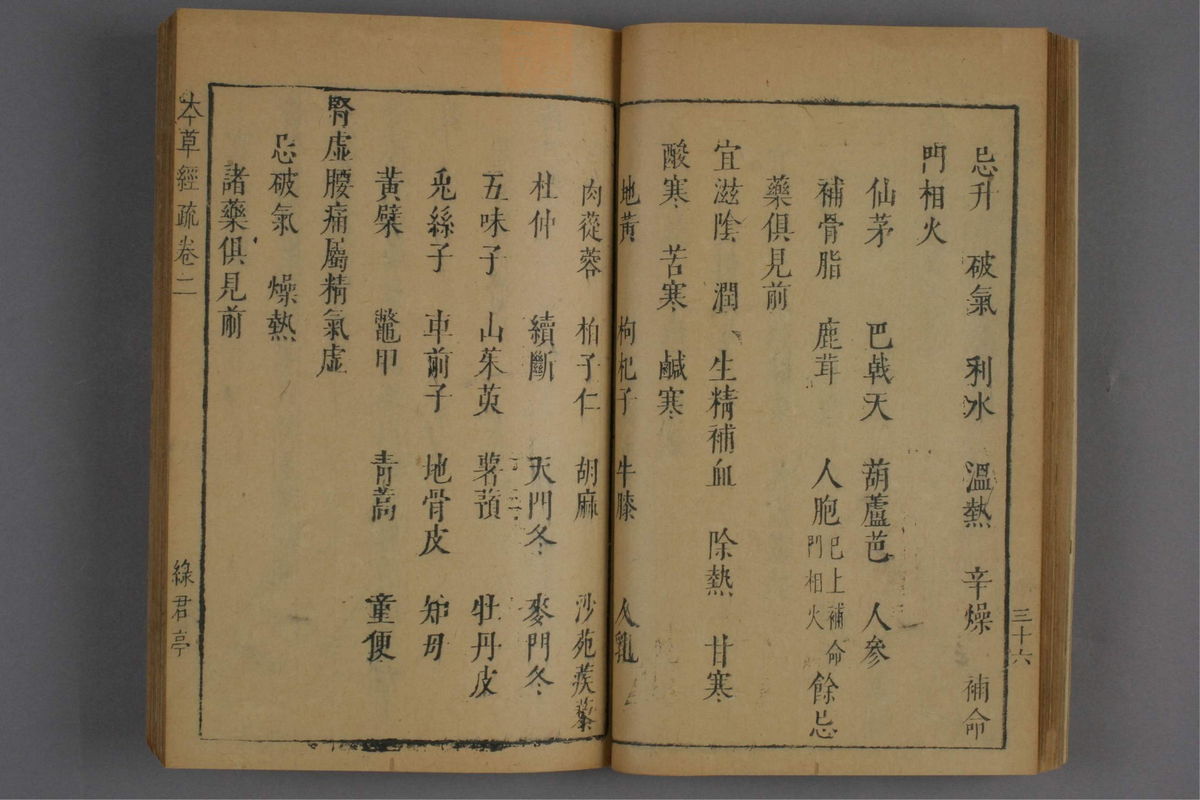 忌升 破氣 利水 溫熱 辛燥 補命
門相火
仙茅 巴戟天 葫蘆芭 人參
補骨脂 鹿茸 人胞 巳上補命門相火 餘忌
藥俱見前
宜滋陰 潤 生精補血 除熱 甘寒
酸寒 苦寒 鹹寒
地黃 枸杞子 牛膝 人乳
肉蓯蓉 柏子仁 胡麻 沙苑蒺藜
杜仲 續斷 天門冬 麥門冬
五味子 山茱萸 薯蕷 牡丹皮
兎絲子 車前子 地骨皮 知母
黃檗 鼈甲 青蒿 童便
腎虛腰痛屬精氣虛
忌破氣 燥熱
諸藥俱見前
三十六
本草經疏卷二
綠君亭